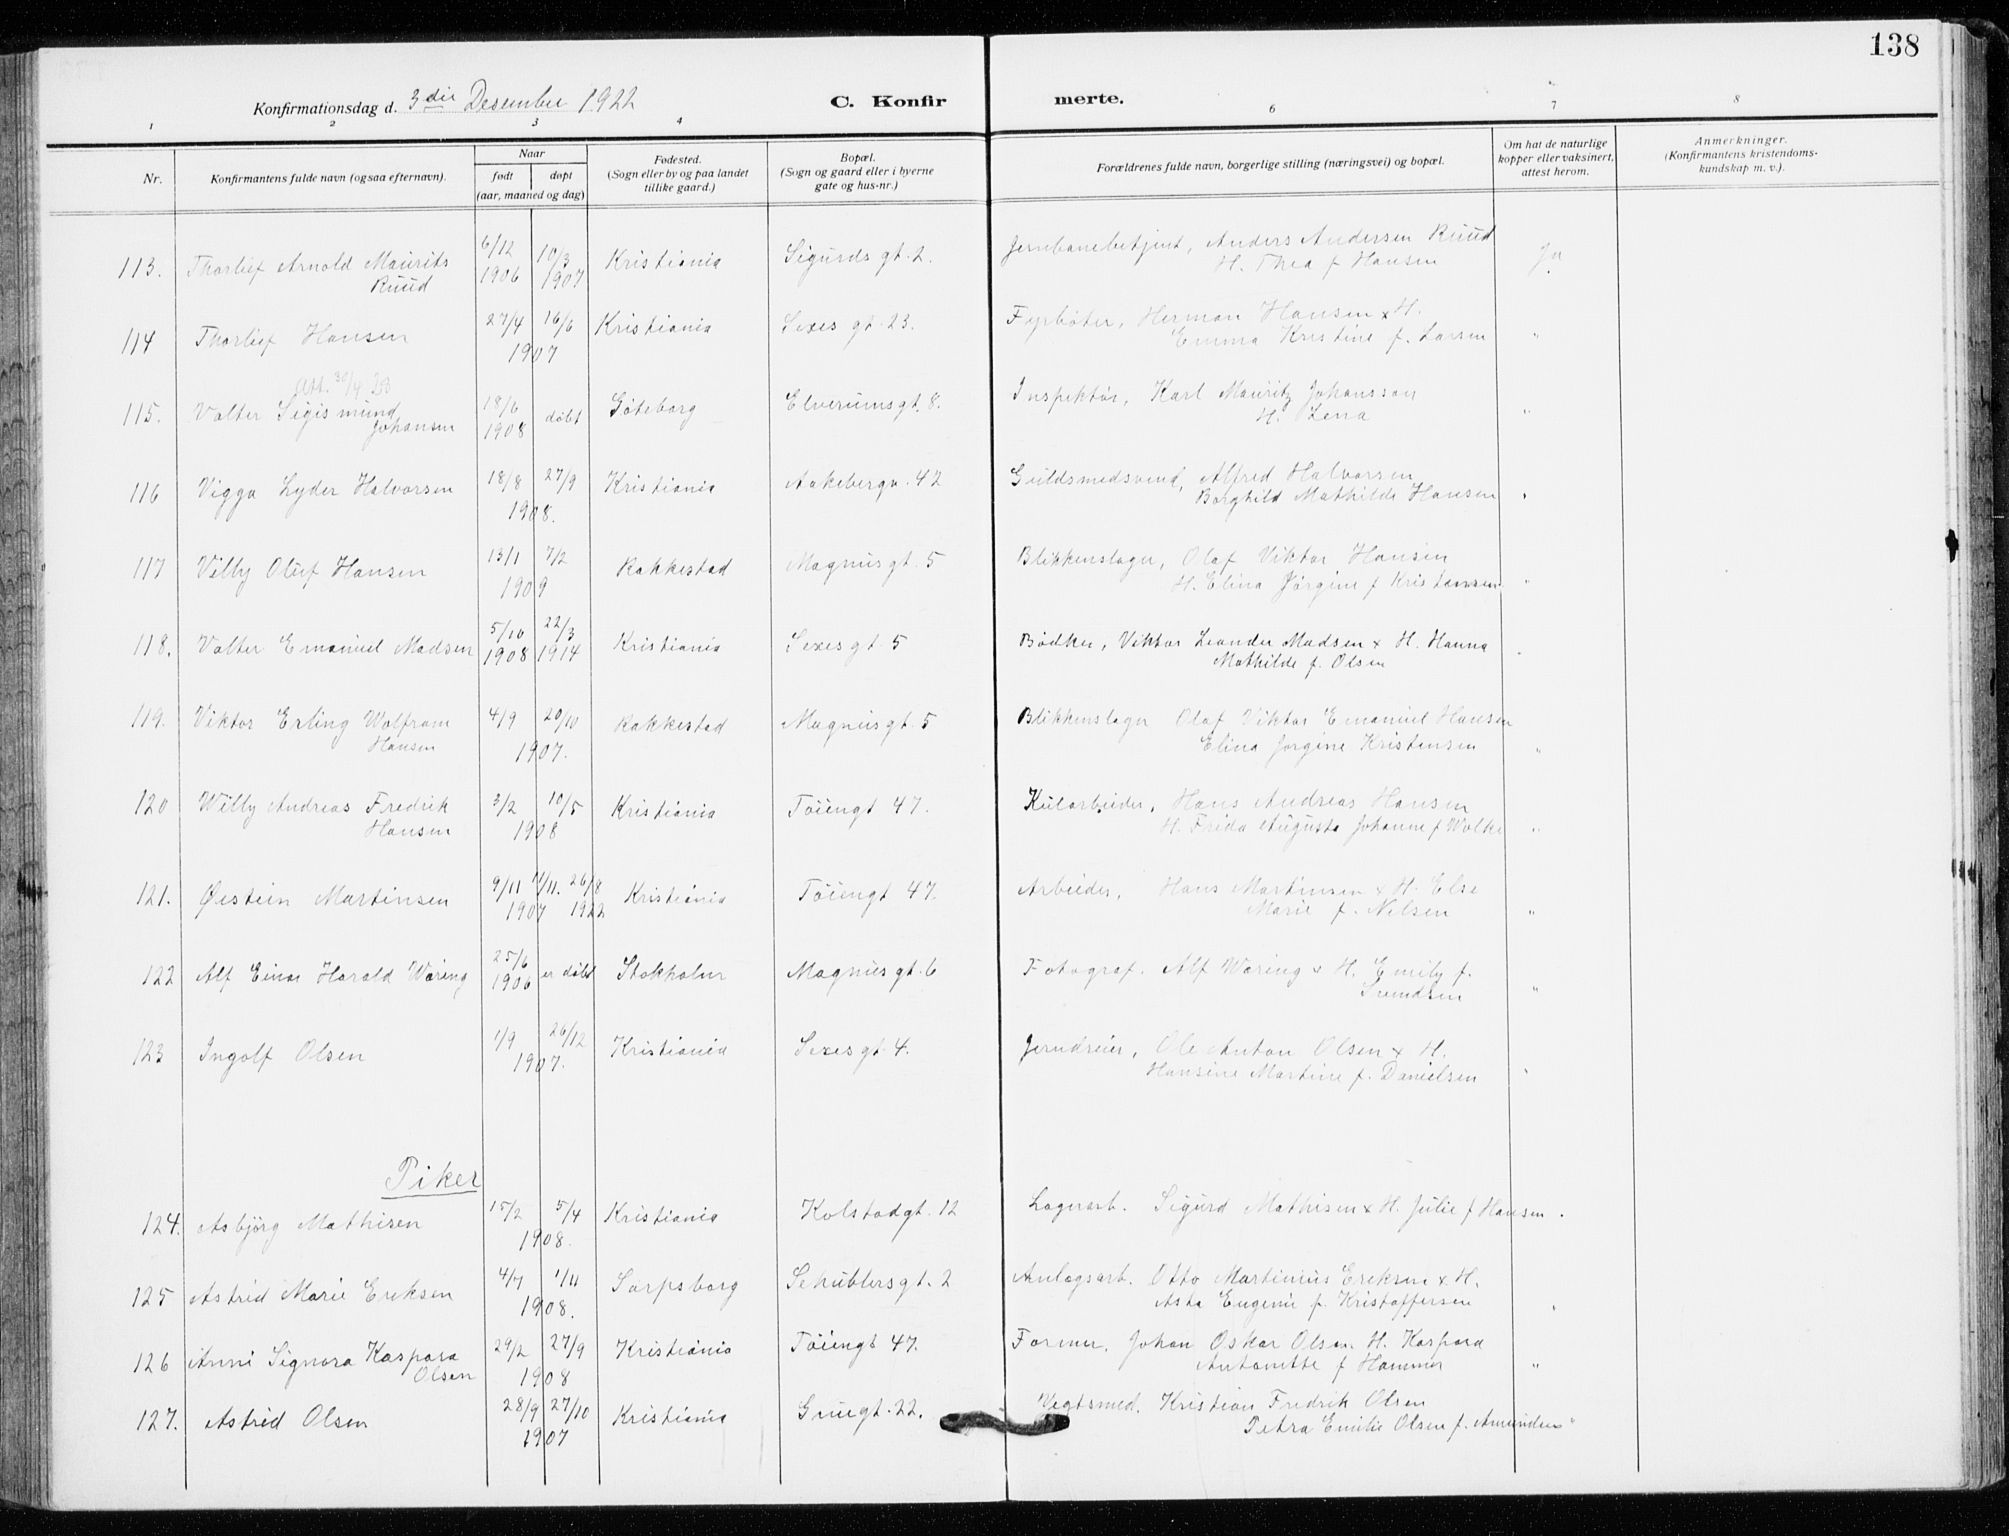 138
Konfirmationsdag d. 3die Desember 1922
C. Konfirmerte.
1 2 3 4 6 7 8
Nr.
Konfirmantens fulde navn (ogsaa efternavn).
Naar
født
døpt
(aar, maaned og dag)
Fødested.
(Sogn eller by og paa landet
tillike gaard.)
Bopæl.
(Sogn og gaard eller i byerne
gate og hus-nr.)
Forældrenes fulde navn, borgerlige stilling (næringsvei) og bopæl.
Om hat de naturlige
kopper eller vaksinert,
attest herom.
Anmerkninger.
(Konfirmantens kristendoms-
kundskap m. v.).
113. Thorlief Arnold Maurits 6/12 10/3 Kristiania Sigurds gt. 2. Jernbanebetjent, Anders Andersen Ruud Ja
Ruud 1906 1907 H. Thea f Hansen
114 Thorlief Hansen 27/4 16/6 Kristiania Sexes gt. 23. Fyrbøter, Herman Hansen x H. "
1907 Emma Kristine f. Larsen
Att. 30/4
115. Valter Sigismund 18/6 døbt Göteborg Elverumsgt. 8. Inspektør, Karl Mauritz Johansson "
Johansen 1908 H. Lena
116 Viggo Lyder Halvorsen 18/8 27/9 Kristiania Aakebergv. 42 Guldsmedsvend, Alfred Halvorsen
1908. Borghild Mathilde Hansen "
117 Villy Oluf Hansen 13/1 7/2 Rakkestad Magnusgt. 5 Blikkenslager, Olaf Viktor Hansen
1909 H. Elina Jörgine f Kristensen "
118. Valter Emanuel Madsen 5/10 22/3 Kristiania Sexes gt 5 Bødker, Viktor Leander Madsen x H. Hanna
1908 1914 Mathilde f. Olsen "
119. Viktor Erling Wolfram 4/9 20/10 Rakkestad Magnusgt. 5 Blikkenslager Olaf Viktor Emanuel Hansen
Hansen 1907. Elina Jorgine Kristensen "
120 Willy Andreas Fredrik 3/2 10/5 Kristiania Töiengt 47. Kularbeider, Hans Andreas Hansen
Hansen 1908 H. Frida Augusta Johanne f Wolke "
121. Øistein Martinsen 9/11 11/11. 26/8 Kristiania Töiengt 47. Arbeider, Hans Martinsen x H. Else
1907 1922 Marie f. Nilsen "
122 Alf Einar Harald Waring 25/6 er døbt Stokholm Magnusgt. 6 Fotograf. Alf Waring x H. Emily f.
1906 Svendsen "
123 Ingolf Olsen 1/9 26/12 Kristiania Sexes gt. 4. Jerndreier, Ole Anton Olsen x H.
1907. Hansine Martine f. Danielsen "
Piker
124. Asbjörg Mathisen 15/2 5/4 Kristiania Kolstadgt. 12 Lagerarb. Sigurd Mathisen x H. Julie f Hansen "
1908.
125 Astrid Marie Eriksen 4/7 1/11 Sarpsborg Schüblersgt. 2 Anlægsarb. Otto Martinius Eriksen x H.
1908. Asta Eugenie f. Kristoffersen "
126 Anni Signora Kaspara 29/2 27/9 Kristiania Töiengt 47. Former, Johan Oskar Olsen. H. Kaspara
Olsen 1908 Antonitte f Hammer "
127. Astrid Olsen 28/9 27/10 Kristiania Gruegt. 22. Vegtsmed. Kristian Fredrik Olsen
1907 Petra Emilie Olsen f. Amundsen "